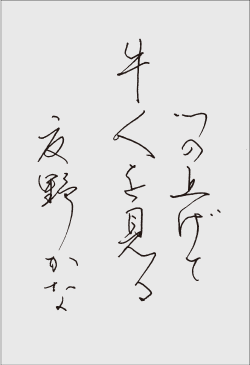 つの上げて
牛人を見る
夏野かな